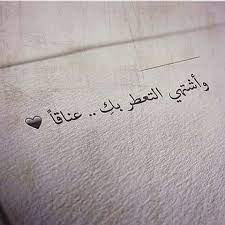 وأشتهي التعطر بكِ .. عناقاً